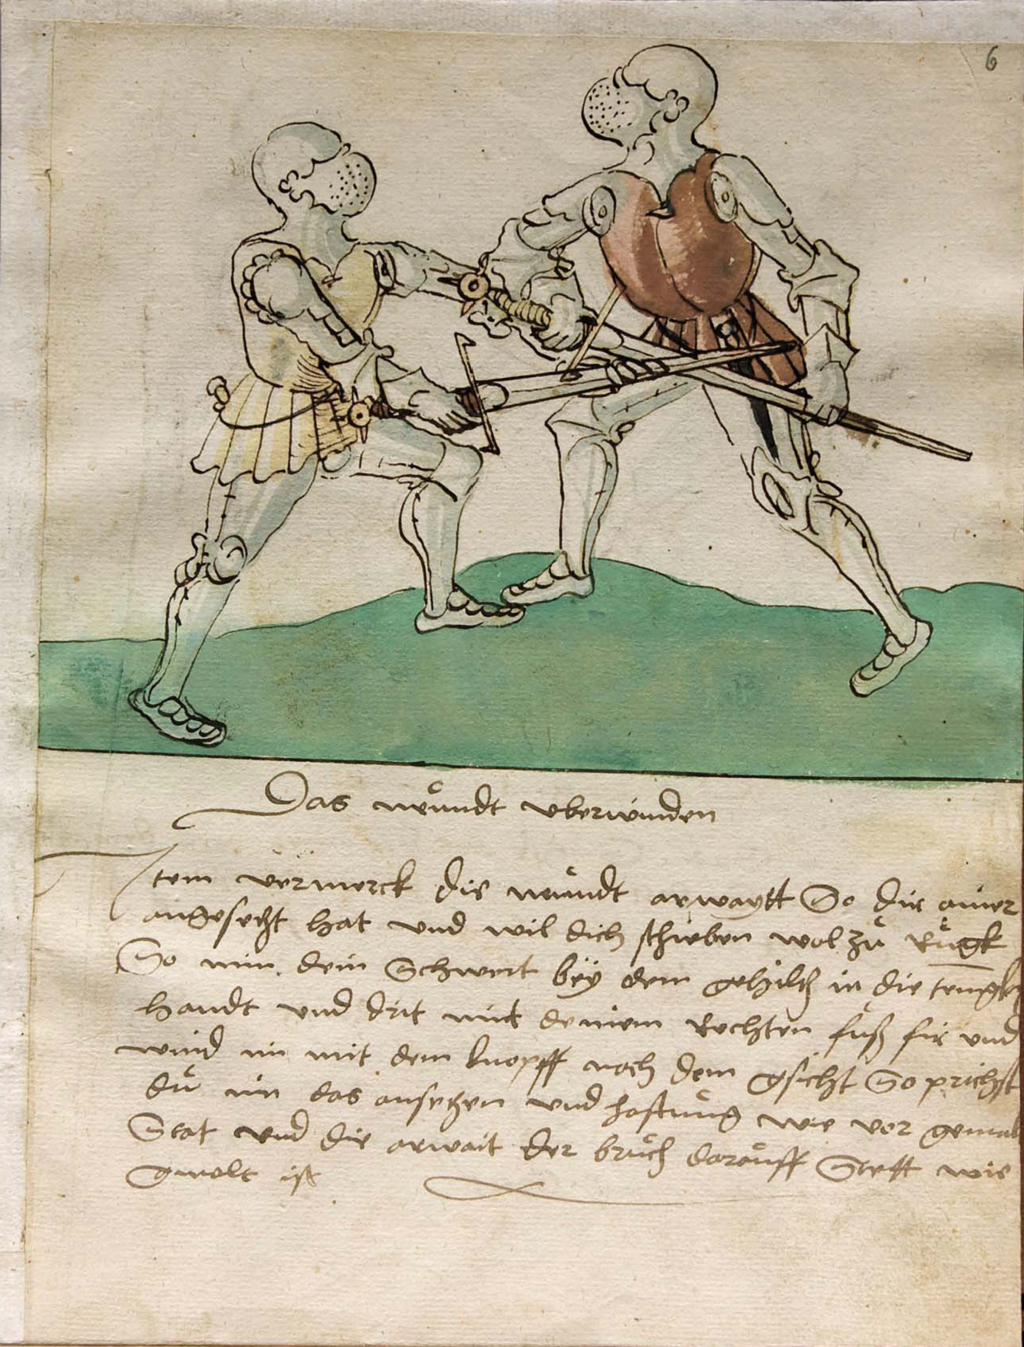 6
Das wundt vberwinden
Item vermerck die wundt arwaytt So dir ainer
angesetzt hat vnd wil dich schieben wol zu Rugk
So nim dein Schwert bey dem gehiltz in die
handt vnd drit mit deinem Rechten fuß fir vnd
wind im mit dem knopff nach dem gsicht So prichst
du im das ansetzen vnd hafftung wie vor gemalt
Stat vnd die arwait der bruch darauff Stett wie
gmolt ist